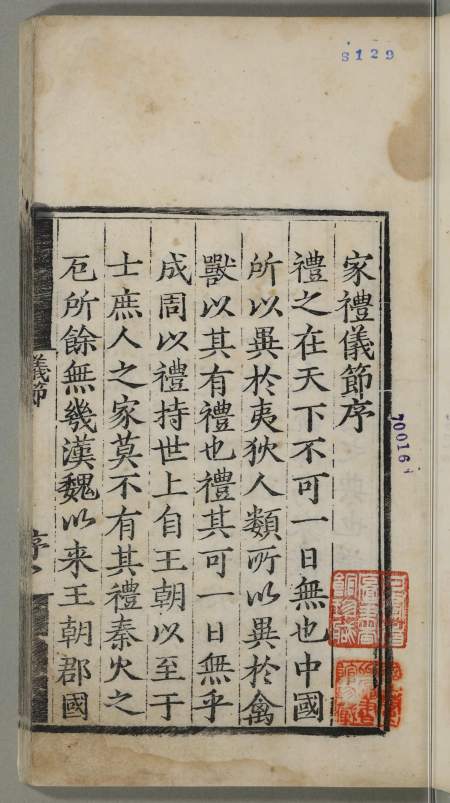 8129
家禮儀節序
禮之在天下不可一日無也中國
所以異於夷狄人類所以異於禽
獸以其有禮也禮其可一日無乎
成周以禮持世上自王朝以至于
士庶人之家莫不有其禮秦火之
厄所餘無幾漢魏以来王朝郡國
儀節
序
70016